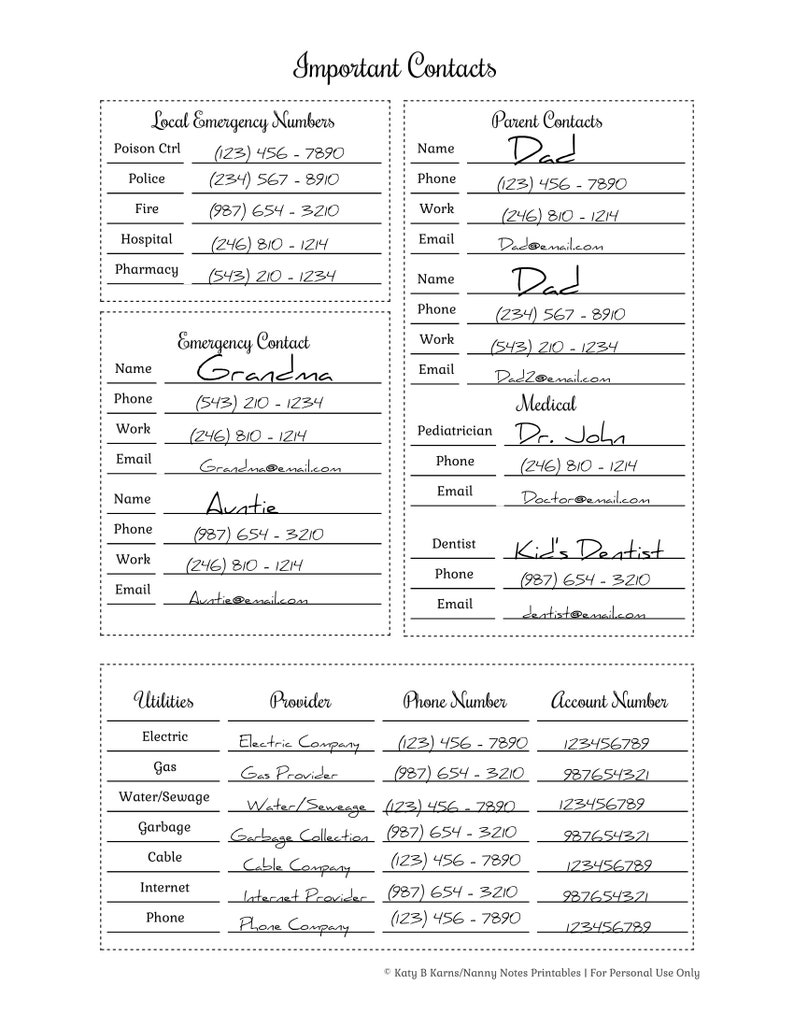 Important Contacts
Local Emergency Numbers
Poison Ctrl (123) 456 - 7890
Police (234) 567 - 8910
Fire (987) 654 - 3210
Hospital (246) 810 - 1214
Pharmacy (543) 210 - 1234
Emergency Contact
Name Grandma
Phone (543) 210 - 1234
Work (246) 810 - 1214
Email Grandma@email.com
Name Auntie
Phone (987) 654 - 3210
Work (246) 810 - 1214
Email Auntie@email.com
Parent Contacts
Name Dad
Phone (123) 456 - 7890
Work (246) 810 - 1214
Email Dad@email.com
Name Dad
Phone (234) 567 - 8910
Work (543) 210 - 1234
Email Dad2@email.com
Medical
Pediatrician Dr. John
Phone (246) 810 - 1214
Email Doctor@email.com
Dentist Kid's Dentist
Phone (987) 654 - 3210
Email dentist@email.com
Utilities Provider Phone Number Account Number
Electric Electric Company (123) 456 - 7890 123456789
Gas Gas Provider (987) 654 - 3210 987654321
Water/Sewage Water/Seweage (123) 456 - 7890 123456789
Garbage Garbage Collection (987) 654 - 3210 987654321
Cable Cable Company (123) 456 - 7890 123456789
Internet Internet Provider (987) 654 - 3210 987654321
Phone Phone Company (123) 456 - 7890 123456789
© Katy B Karns/Nanny Notes Printables | For Personal Use Only